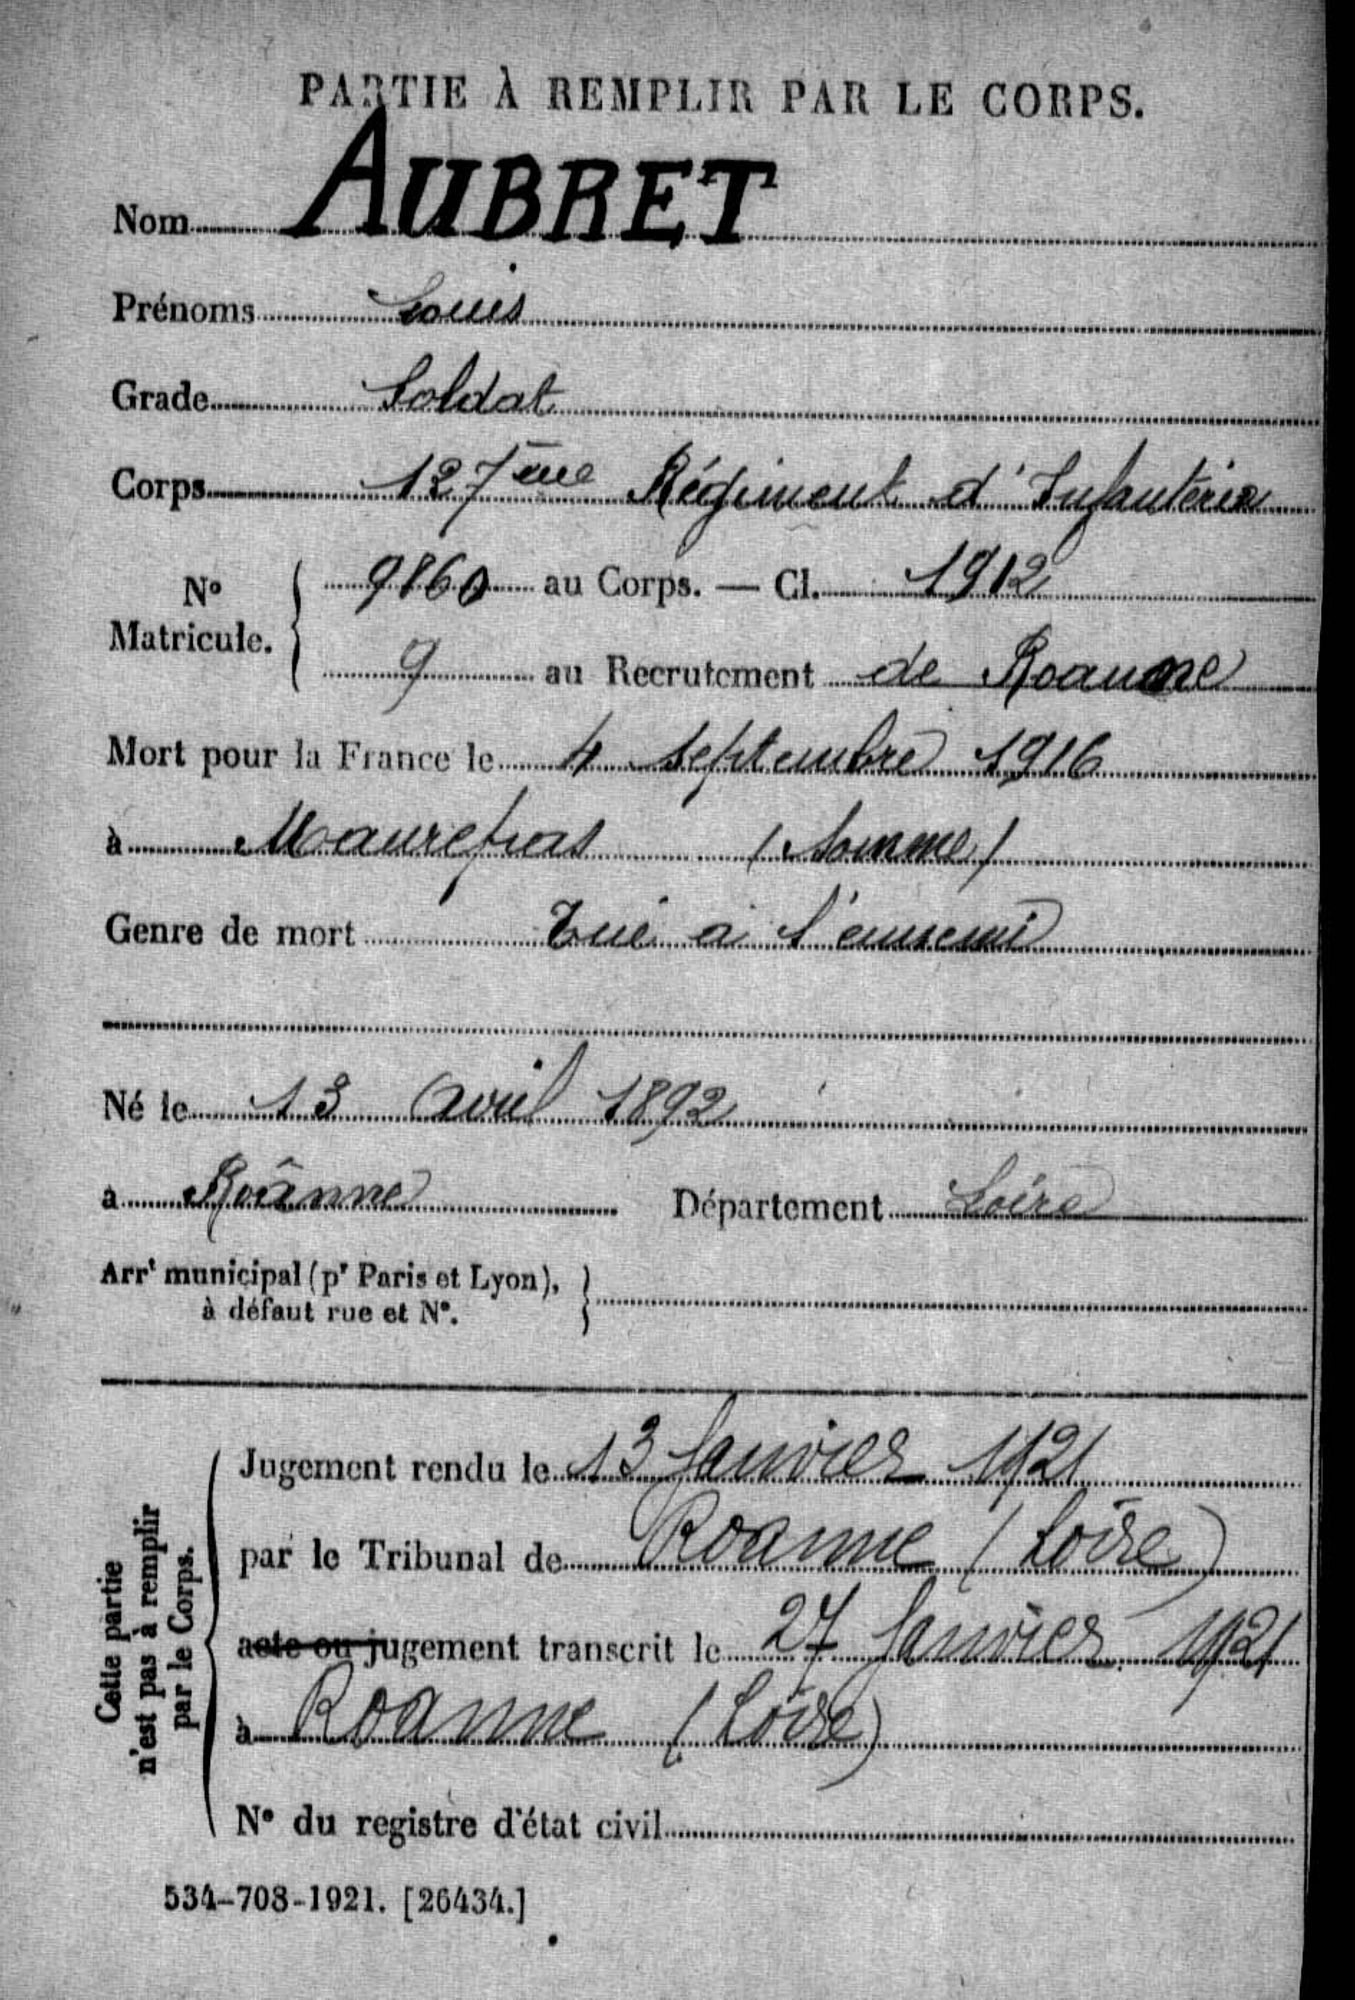 PARTIE À REMPLIR PAR LE CORPS.
Nom AUBRET
Prénoms Louis
Grade Soldat
Corps 127ème Régiment d'Infanterie
N° Matricule. { 9860 au Corps. — Cl. 1912
9 au Recrutement de Roanne
Mort pour la France le 4 septembre 1916
à Maurepas (Somme)
Genre de mort Tué à l'ennemi
Né le 13 Avril 1892
à Roanne Département Loire
Arrt municipal (pr Paris et Lyon), }
à défaut rue et N°.
Cette partie
n'est pas à remplir
par le Corps.
Jugement rendu le 13 Janvier 1921
par le Tribunal de Roanne (Loire)
acte ou jugement transcrit le 27 Janvier 1921
à Roanne (Loire)
N° du registre d'état civil
534-708-1921. [26434.]